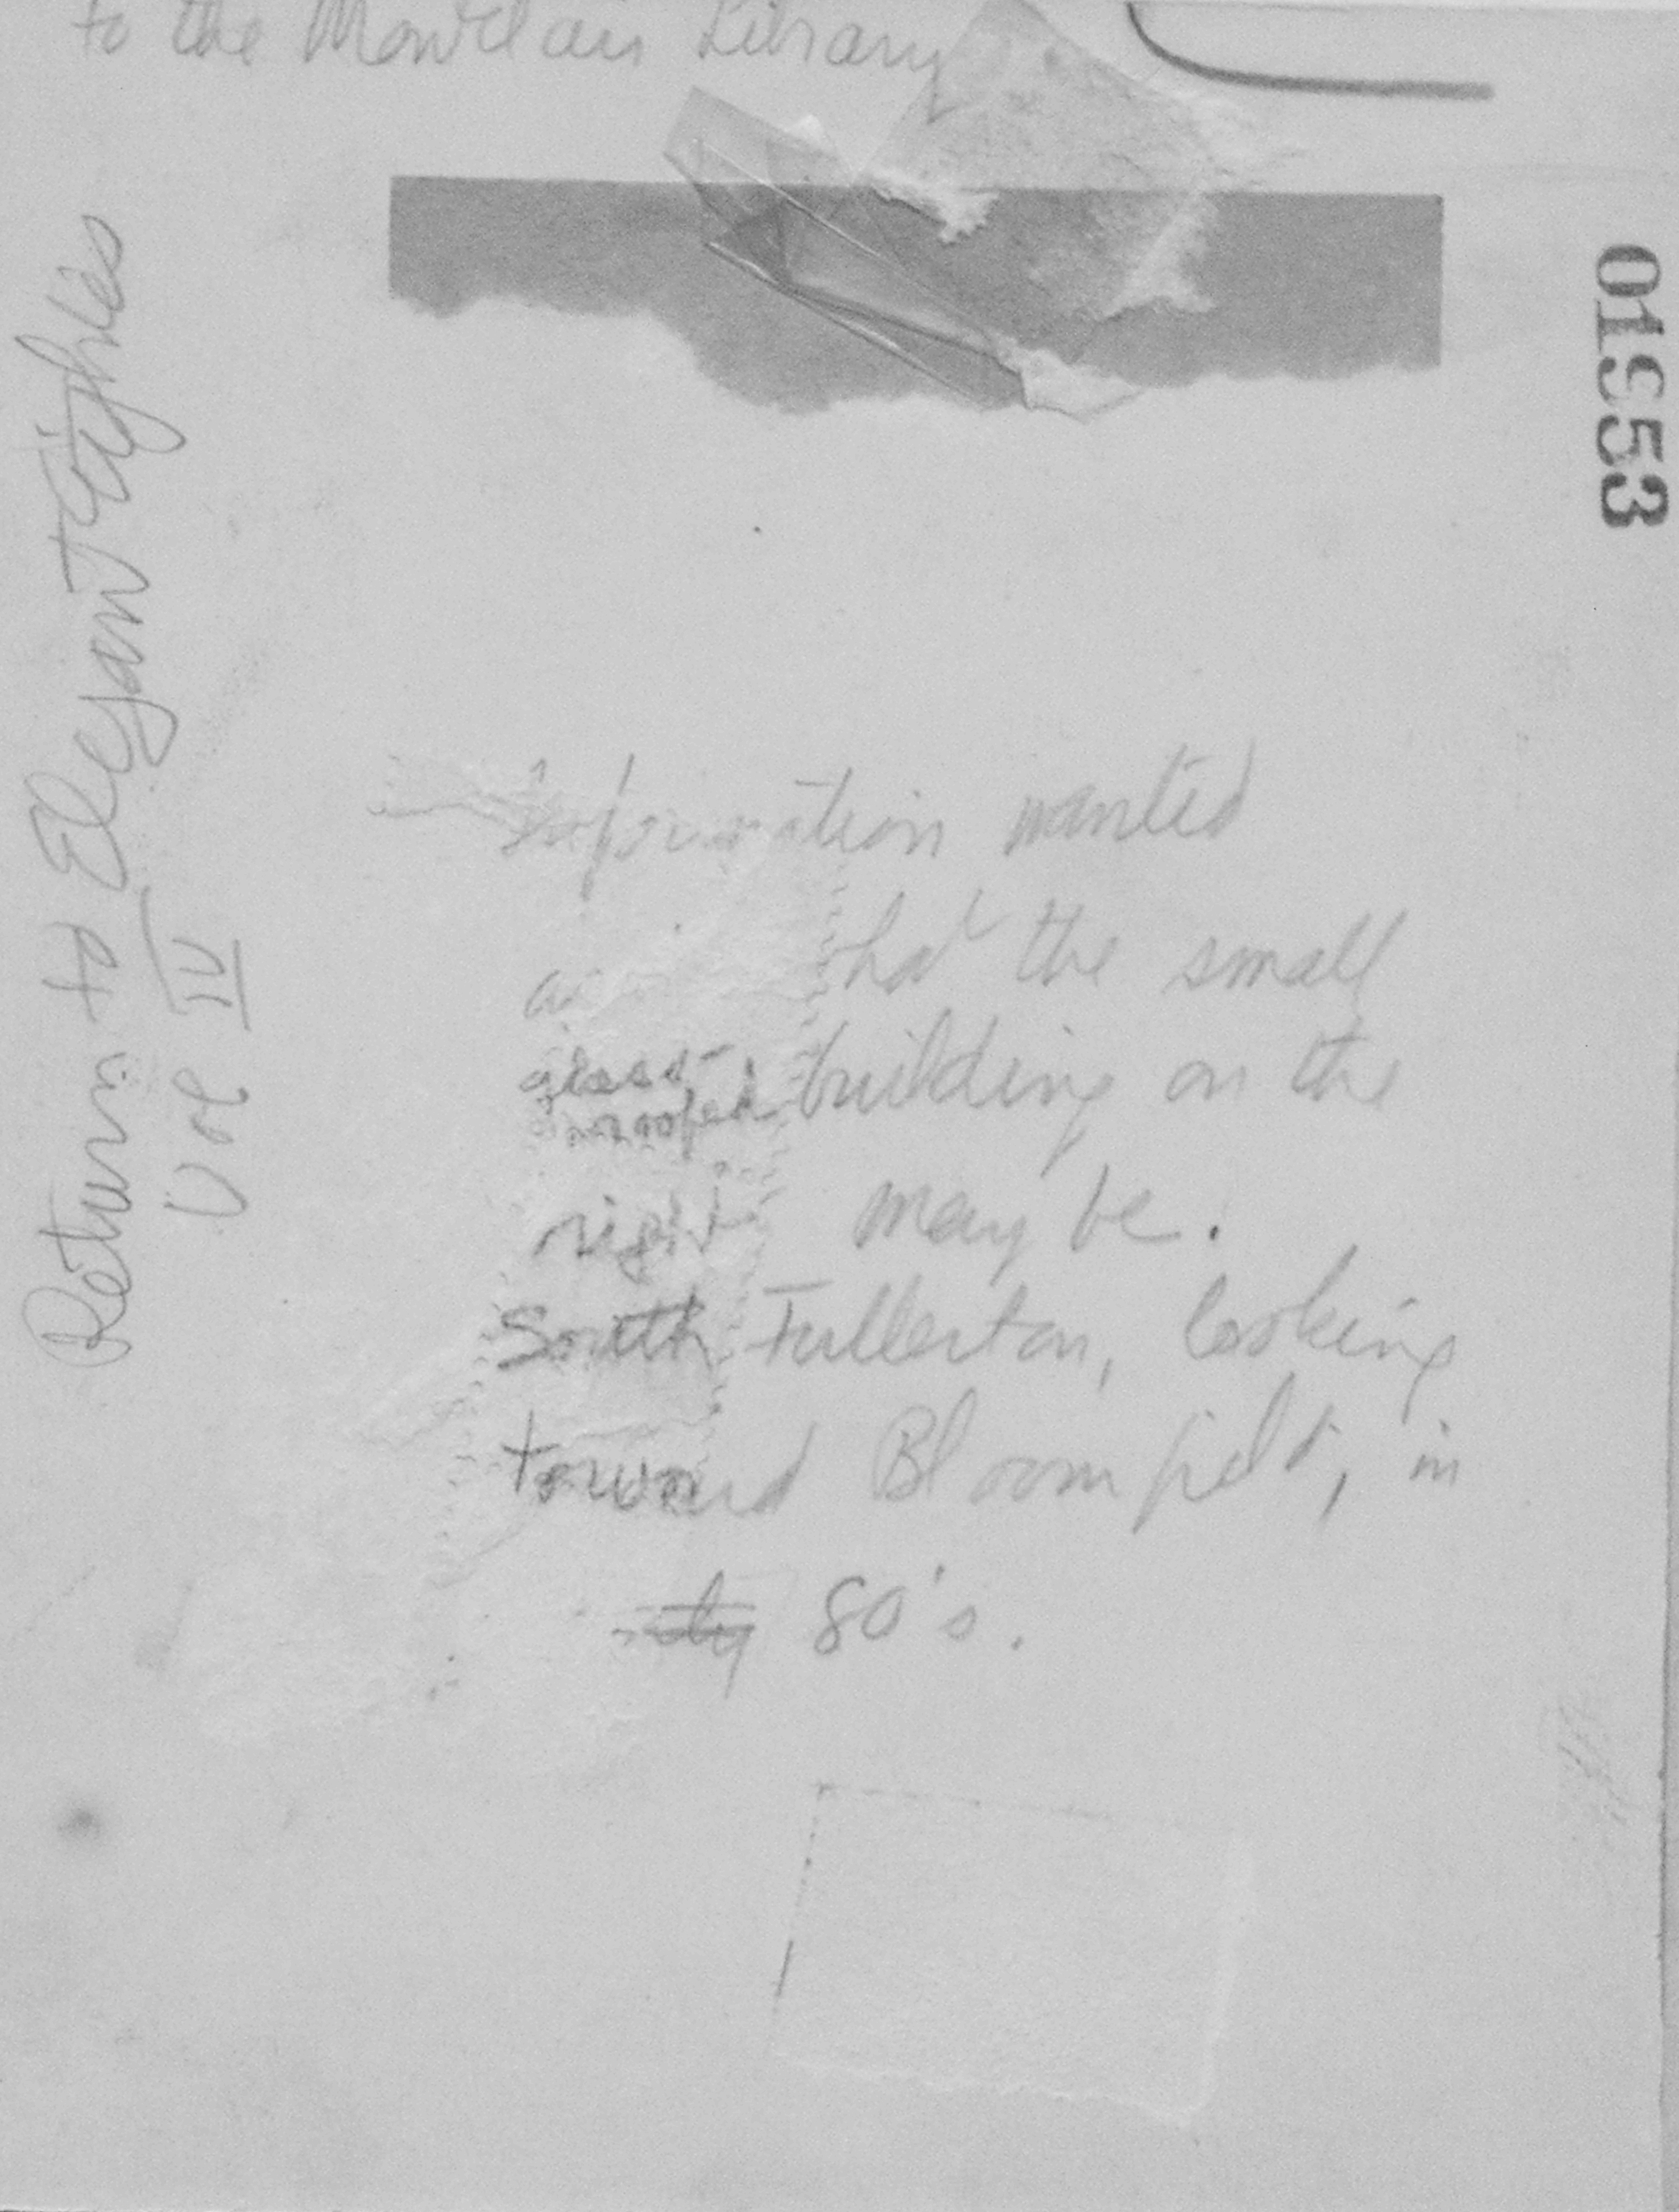 to the Montclair Library
01953
Return to Elegant Eighties
Vol IV
Information wanted
hat the small
glass-
roofed building on the
right may be.
South Fullerton, looking
toward Bloomfield, in
80's.